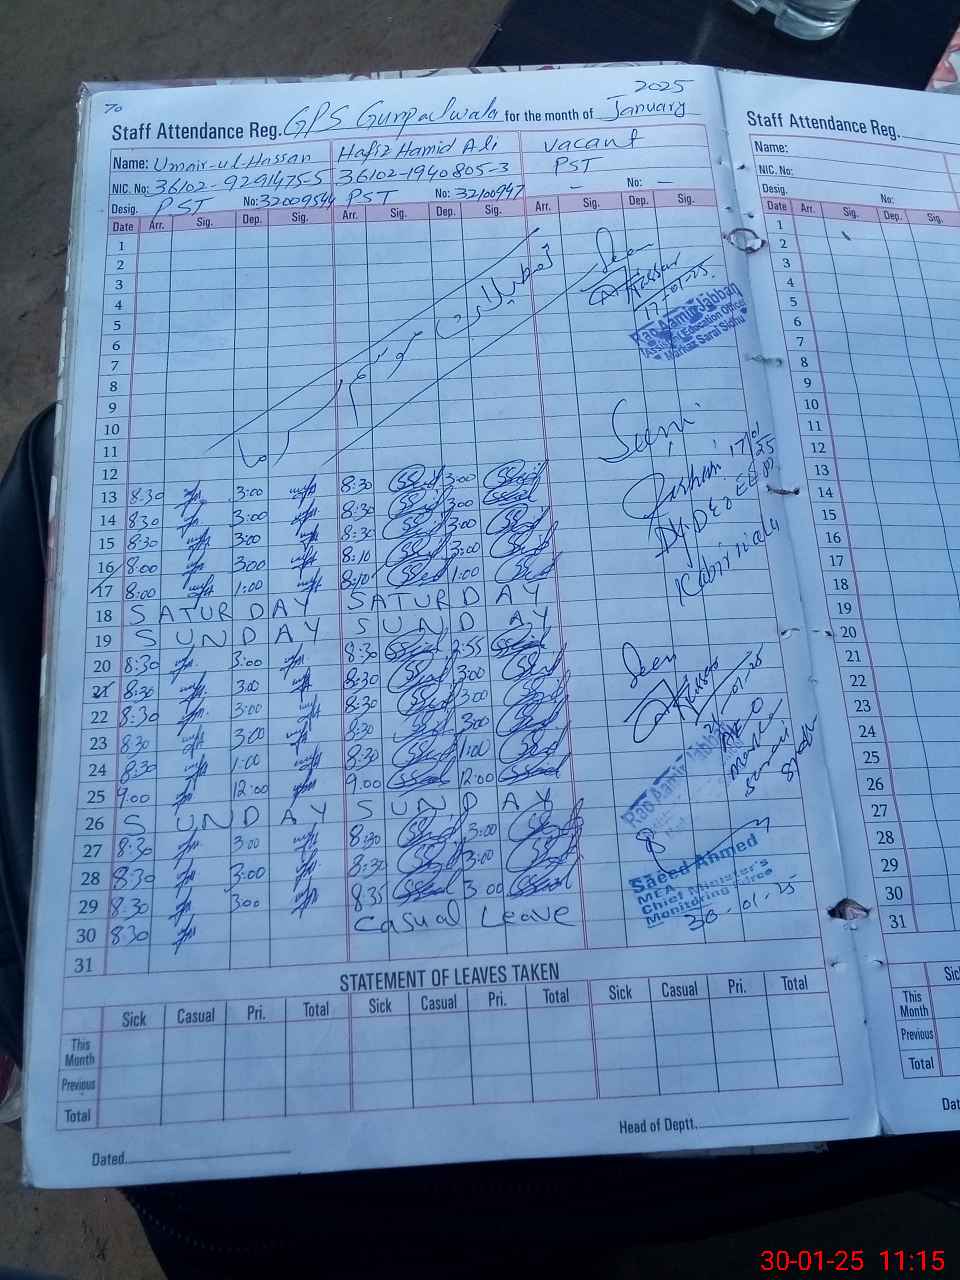 70
2025
Staff Attendance Reg. GPS Gunpalwala for the month of January
Name: Umair-ul-Hassan Hafiz Hamid Ali Vacant
NIC. No: 36102-9291475-5 36102-1940805-3 PST
Desig. PST No: 32009544 PST No: 32100947 - No: -
Date Arr. Sig. Dep. Sig. Arr. Sig. Dep. Sig. Arr. Sig. Dep. Sig.
1
2
3
4
5
6
7
8
9
10
11
12
تعطیلات موسم سرما
Seen
17-01-25.
Rao Aamir Jabbar
Assistant Education Officer
Markaz Sarai Sidhu
13 8:30 3:00 8:30 3:00
14 8:30 3:00 8:30 3:00
15 8:30 3:00 8:30 3:00
16 8:00 3:00 8:10 3:00
17 8:00 1:00 8:10 1:00
18 SATURDAY SATURDAY
19 SUNDAY SUNDAY
20 8:30 3:00 8:30 2:55
21 8:30 3:00 8:30 3:00
22 8:30 3:00 8:30 3:00
23 8:30 3:00 8:30 3:00
24 8:30 1:00 8:30 1:00
25 9.00 12:00 9.00 12:00
26 SUNDAY SUNDAY
27 8:30 3:00 8:30 3:00
28 8:30 3:00 8:30 3:00
29 8:30 3:00 8:35 3:00
30 8:30 Casual Leave
31
Seen
17/01/25
Dy. DEO
Kabirwala
Seen
01-25
AEO
Rao Aamir Jabbar
Saeed Ahmed
MEA
Chief Minister's
Monitoring Force
30-01-25
STATEMENT OF LEAVES TAKEN
Sick Casual Pri. Total Sick Casual Pri. Total Sick Casual Pri. Total
This Month
Previous
Total
Head of Deptt.
Dated
Staff Attendance Reg.
Name:
NIC. No:
Desig. No:
Date Arr. Sig. Dep. Sig.
1
2
3
4
5
6
7
8
9
10
11
12
13
14
15
16
17
18
19
20
21
22
23
24
25
26
27
28
29
30
31
Sic
This Month
Previous
Total
Dat
30-01-25 11:15